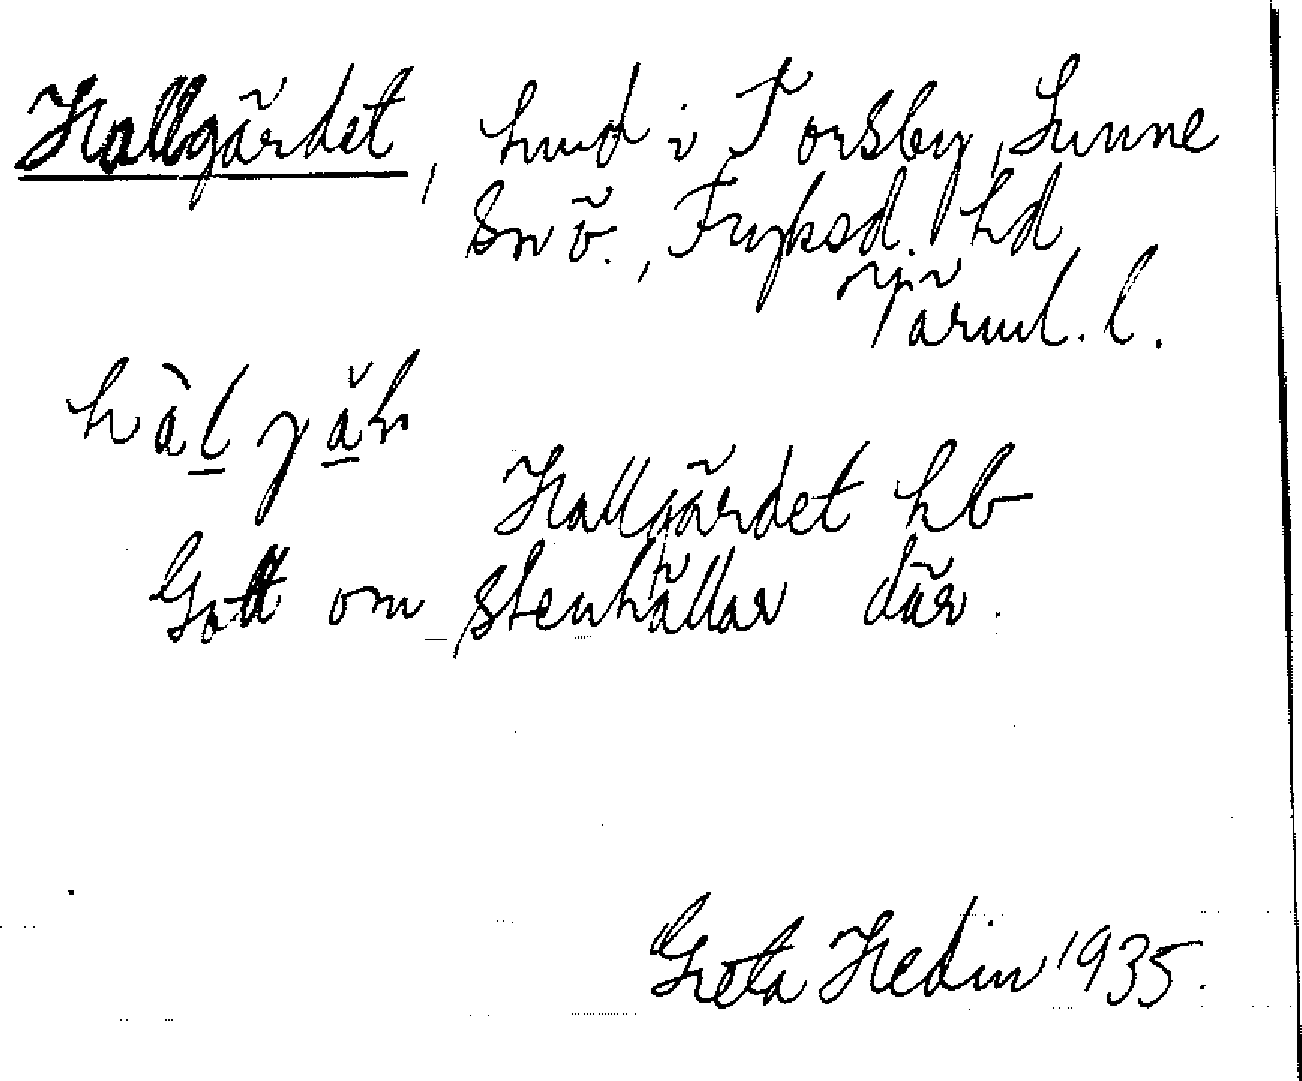 Hallgärdet, hmd i Torsby, Sunne
sn ö., Fryksd. hd
Värml. l.
Hallgärdet hb
Gott om stenhällar där.
Greta Hedin 1935.